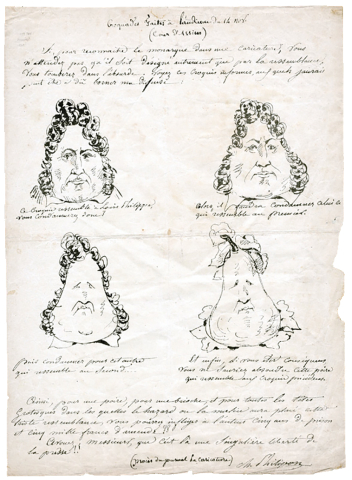 Croquades faites à l'audience du 14 nov.
(Cour d'assises)
Si, pour reconnaître le monarque dans une caricature, vous
n'attendez pas qu'il soit désigné autrement que par la ressemblance,
vous tomberez dans l'absurde. Voyez ces croquis informes, auxquels j'aurais
peut-être dû borner ma défense.
Ce croquis ressemble à Louis Philippe,
vous condamnerez donc ?
Alors il faudra condamner celui-ci
qui ressemble au premier.
Puis condamner pour cet autre
qui ressemble au second.
Et enfin, si vous êtes conséquens,
vous ne sauriez absoudre cette poire
qui ressemble aux croquis précédens.
Ainsi, pour une poire, pour une brioche, et pour toutes les têtes
grotesques dans lesquelles le hazard ou la malice aura placé cette
triste ressemblance, vous pourrez infliger à l'auteur cinq ans de prison
et cinq mille francs d'amende ?!!
Avouez, messieurs, que c'est là une singulière liberté de
la presse !!
(procès du journal la caricature)
Ch. Philipon